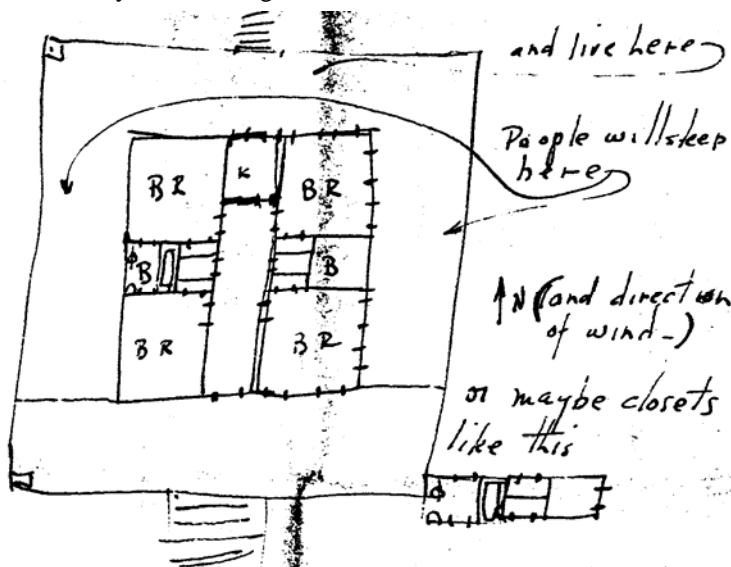 and live here
People will sleep
here
BR
K
BR
B
B
N (and direction
of wind-)
BR
BR
or maybe closets
like this